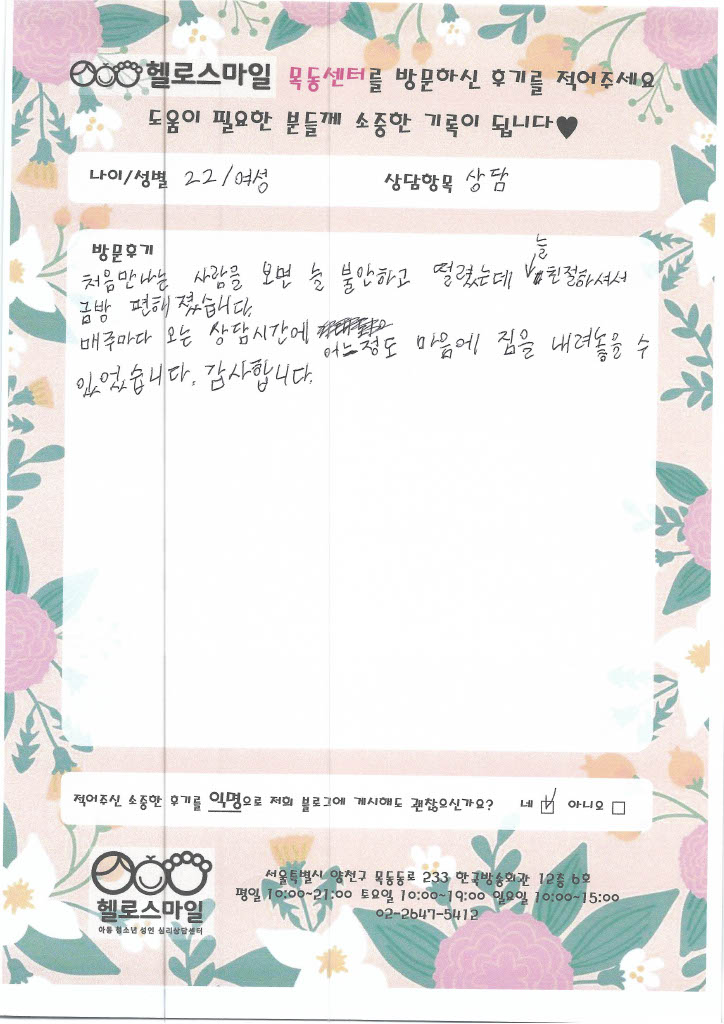 헬로스마일 목동센터를 방문하신 후기를 적어주세요
도움이 필요한 분들께 소중한 기록이 됩니다♥
나이/성별 22/여성 상담항목 상담
방문후기
처음만나는 사람을 보면 늘 불안하고 떨렸는데 늘 친절하셔서
금방 편해졌습니다.
매주마다 오는 상담시간에 어느정도 마음에 짐을 내려놓을 수
있었습니다. 감사합니다.
적어주신 소중한 후기를 익명으로 저희 블로그에 게시해도 괜찮으신가요? 네 ☑ 아니오 □
헬로스마일
아동 청소년 성인 심리상담센터
서울특별시 양천구 목동동로 233 한국방송회관 12층 6호
평일 10:00~21:00 토요일 10:00~19:00 일요일 10:00~15:00
02-2647-5412